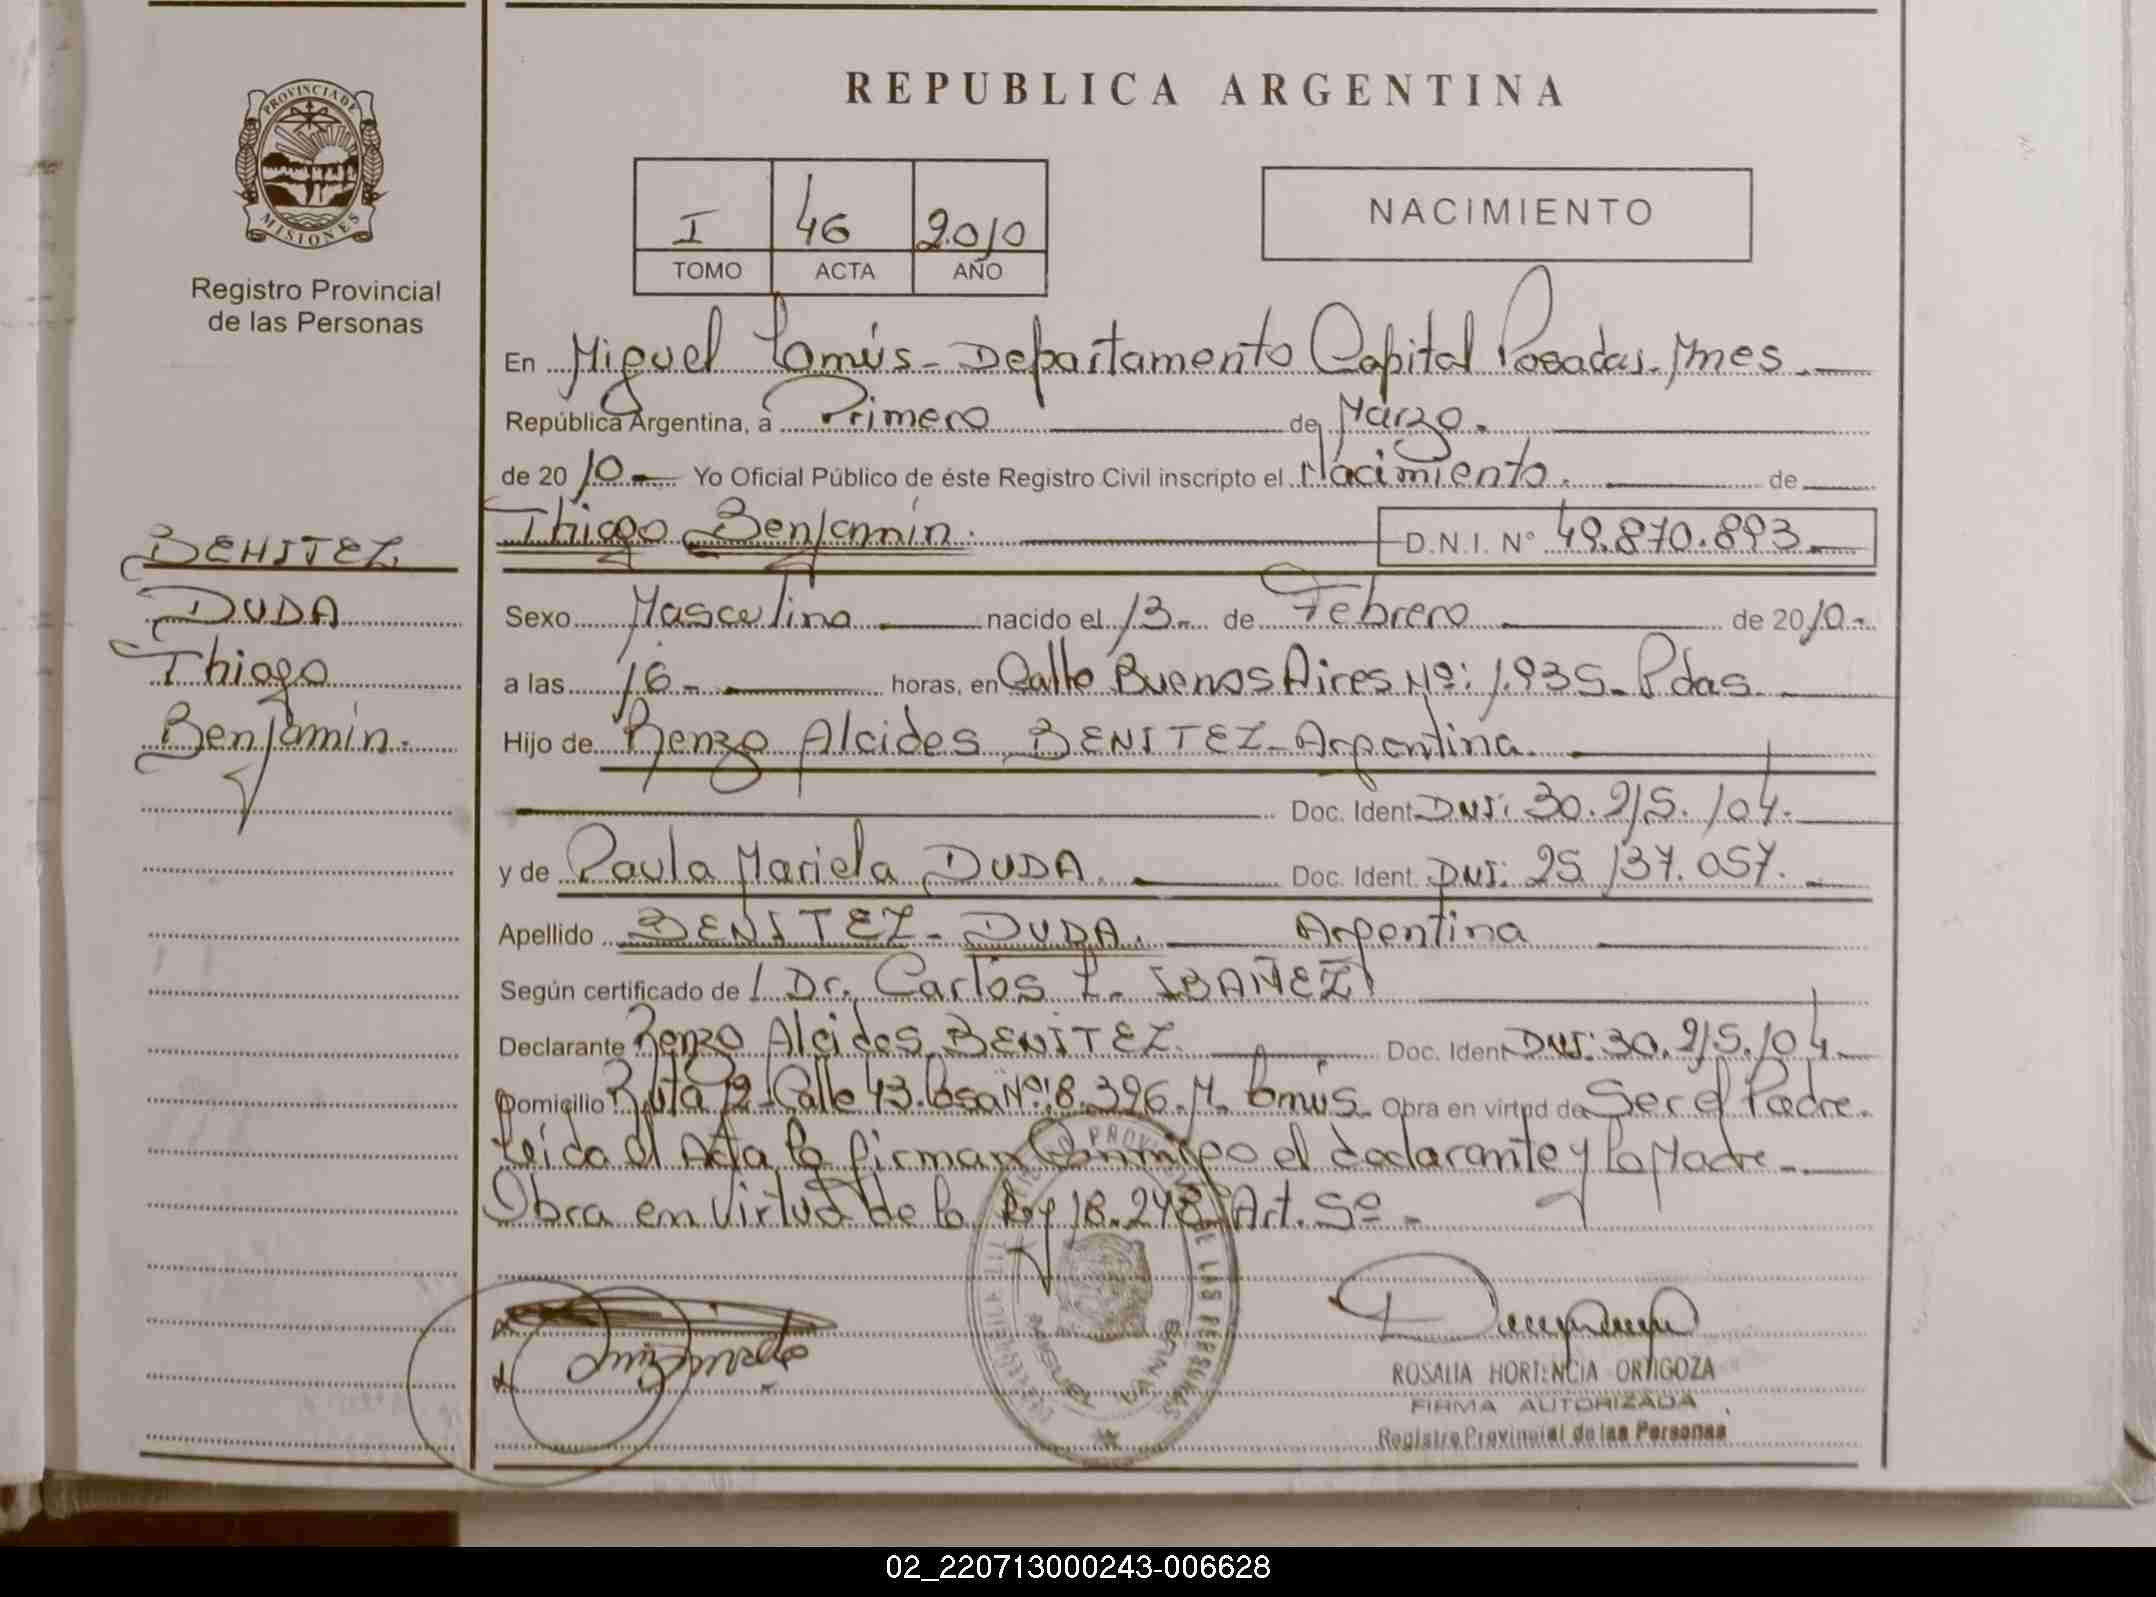 PROVINCIA DE
MISIONES
Registro Provincial
de las Personas
BENITEZ
DUDA
Thiago
Benjamín.
REPUBLICA ARGENTINA
I 46 2010
TOMO ACTA AÑO
NACIMIENTO
En Miguel Lanús - Departamento Capital Posadas. Mnes.
República Argentina, a Primero de Marzo.
de 2010.- Yo Oficial Público de éste Registro Civil inscripto el Nacimiento. de
Thiago Benjamín. D.N.I. N° 49.870.893.
Sexo Masculino nacido el 13 de Febrero de 2010.
a las 16 horas, en Calle Buenos Aires Nº: 1.935. Pdas.
Hijo de Renzo Alcides BENITEZ - Argentina.
Doc. Ident. DNI: 30.215.104.
y de Paula Mariela DUDA. Doc. Ident. DNI: 25.137.057.
Apellido BENITEZ - DUDA. Argentina
Según certificado de Dr. Carlos L. IBAÑEZ
Declarante Renzo Alcides BENITEZ. Doc. Ident. DNI: 30.215.104.
Domicilio Ruta 12 - Calle 43. Casa Nº: 8.396. M. Lanús. Obra en virtud de Ser el Padre.
Leída el Acta la firman Conmigo el declarante y la Madre.
Obra en Virtud de la Ley 18.248 Art. 5º.
MIGUEL LANUS
ROSALIA HORTENCIA ORTIGOZA
FIRMA AUTORIZADA
Registro Provincial de las Personas
02_220713000243-006628